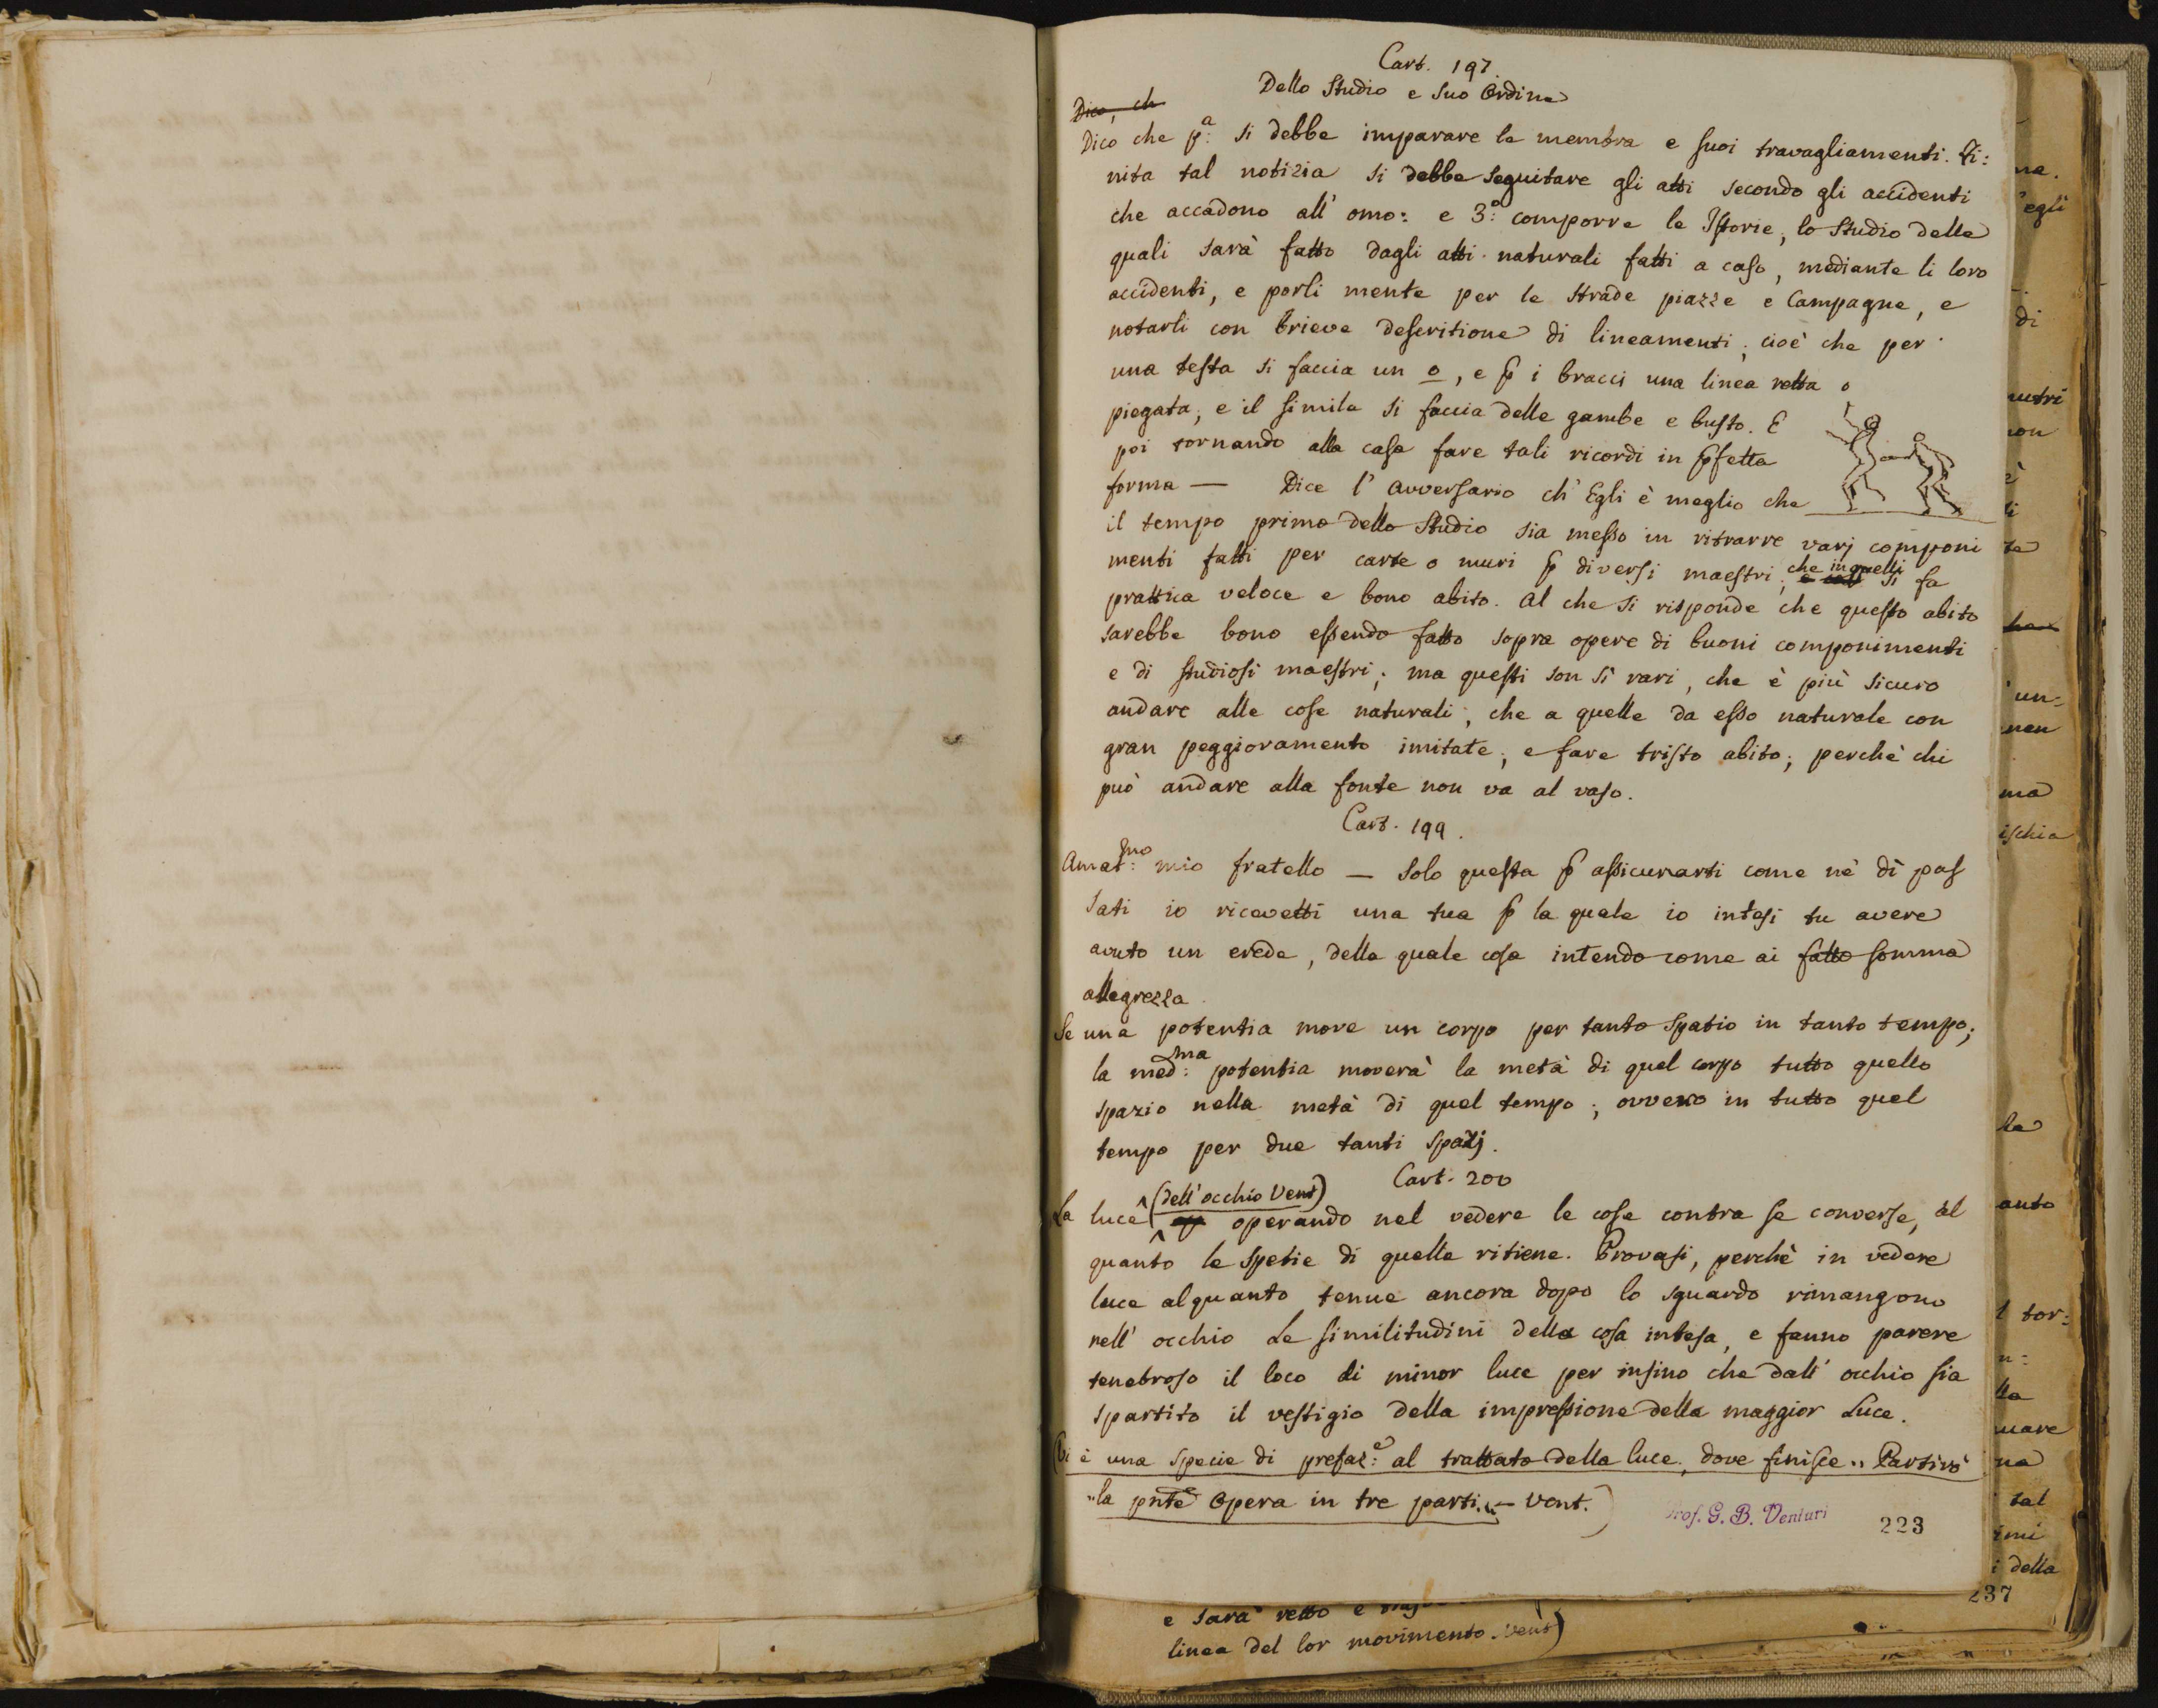 Cart. 197.
Dello Studio e Suo Ordine
Dico, ch
Dico che p:a si debbe imparare le membra e suoi travagliamenti. Fi:
nita tal notizia si debbe seguitare gli atti secondo gli accidenti
che accadono all' omo: e 3:o comporre le Istorie, lo Studio delle
quali sarà fatto dagli atti naturali fatti a caso, mediante li loro
accidenti, e porli mente per le strade piazze e Campagne, e
notarli con brieve descritione di lineamenti; cioè che per
una testa si faccia un o, e p i bracci una linea retta o
piegata; e il simile si faccia delle gambe e busto. E
poi tornando alla casa fare tali ricordi in pfetta
forma — Dice l' Avversario ch' Egli è meglio che
il tempo primo dello Studio sia messo in ritrarre varj componi
menti fatti per carte o muri p diversi maestri; che in quelli si fa
prattica veloce e bono abito. Al che si risponde che questo abito
sarebbe bono essendo fatto sopra opere di buoni componimenti
e di studiosi maestri; ma questi son sì rari, che è più sicuro
andare alle cose naturali, che a quelle da esso naturale con
gran peggioramento imitate, e fare tristo abito; perchè chi
può andare alla fonte non va al vaso.
Cart. 199.
Amat:mo mio fratello — Solo questa p assicurarti come ne' dì pas
sati io ricevetti una tua p la quale io intesi tu avere
avuto un erede, della quale cosa intendo come ai fatto somma
allegrezza.
Se una potentia move un corpo per tanto spatio in tanto tempo;
la med:ma potentia moverà la metà di quel corpo tutto quello
spazio nella metà di quel tempo; ovvero in tutto quel
tempo per due tanti spazj.
Cart. 200
La luce (dell' occhio Vent) operando nel vedere le cose contra se converse, al
quanto le spetie di quelle ritiene. Provasi, perchè in vedere
luce alquanto tenue ancora dopo lo sguardo rimangono
nell' occhio Le similitudini della cosa intesa, e fanno parere
tenebroso il loco di minor luce per insino che dall' occhio sia
spartito il vestigio della impressione della maggior Luce.
(Vi è una specie di prefaz:e al trattato della luce, dove finisce „ Partirò
„ la pnte Opera in tre parti „ — Vent.)
Prof. G. B. Venturi
223
237
e sarà retto e
linea del lor movimento. Vent)
ne.
egli
di
non
è
te
un-
men
ma
ischia
la
anto
l tor:
n:
lla
nare
na
tal
imi
i della